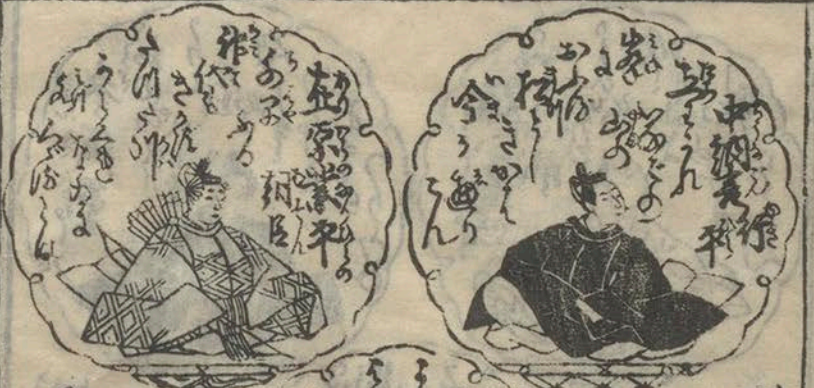 中納言行平
立わかれ
いなばの
山の
峯に
おふる
松とし
きかば
今かへり
こん
在原業平
朝臣
ちはや
ふる
神代も
きかず
たつた川
からくれ
なゐに
水くゝるとは